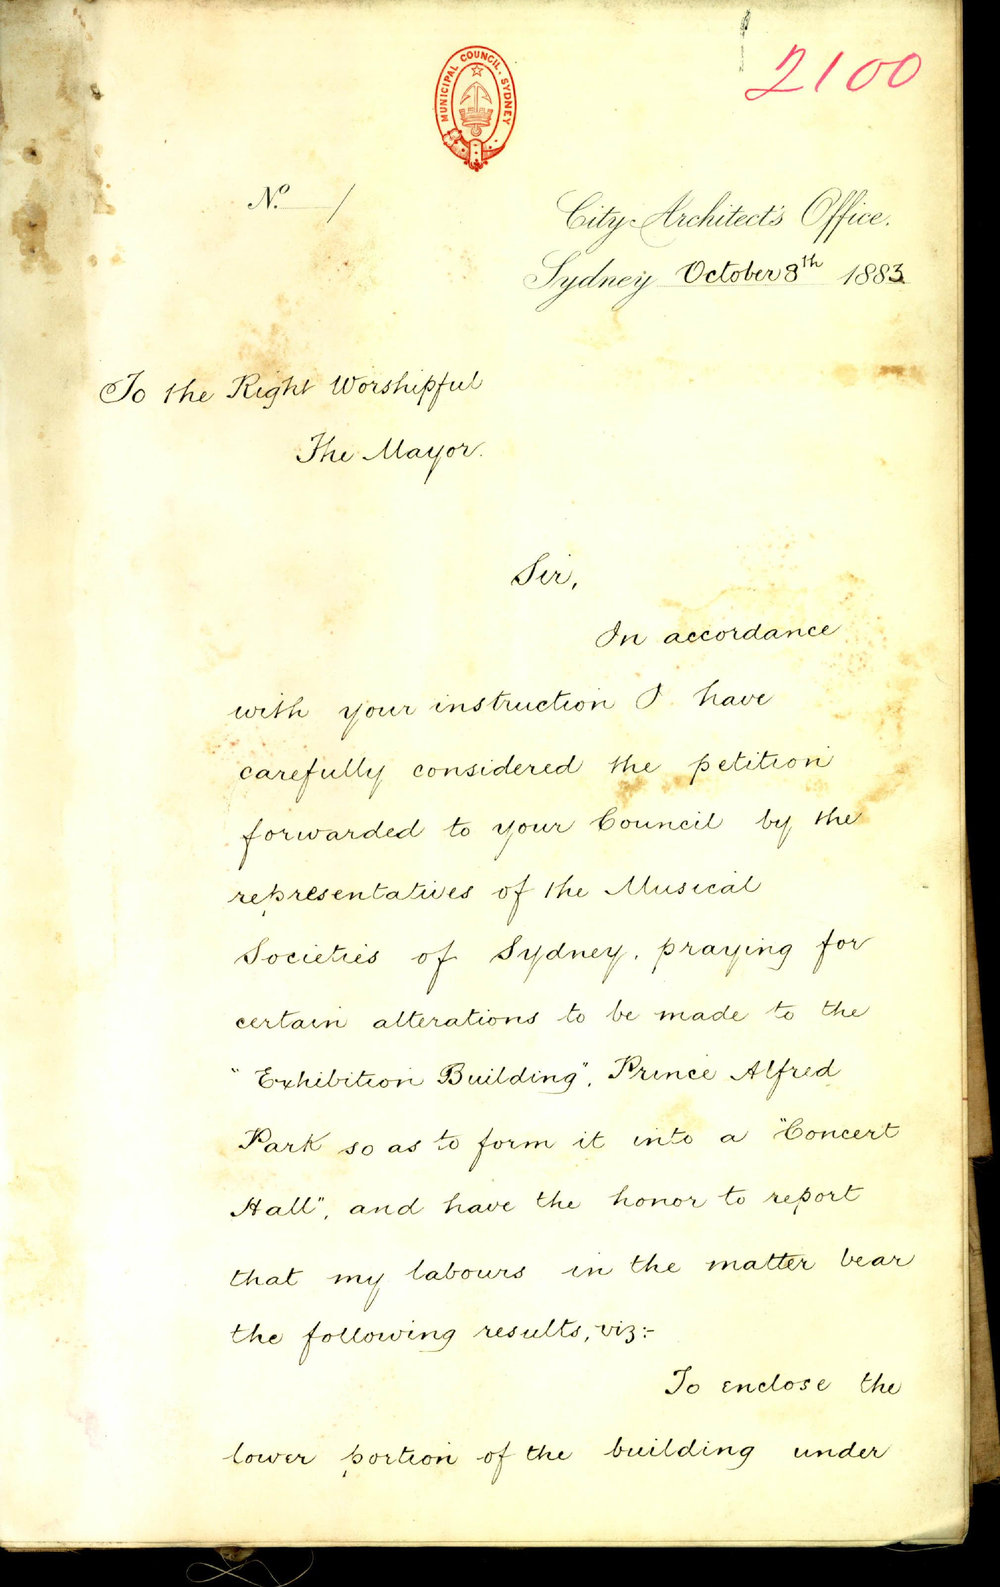 2100
MUNICIPAL COUNCIL. SYDNEY
No. /
City Architect's Office.
Sydney October 8th 1883
To the Right Worshipful
The Mayor.
Sir,
In accordance
with your instruction I have
carefully considered the petition
forwarded to your Council by the
representatives of the Musical
Societies of Sydney, praying for
certain alterations to be made to the
"Exhibition Building", Prince Alfred
Park so as to form it into a "Concert
Hall", and have the honor to report
that my labours in the matter bear
the following results, viz:-
To enclose the
lower portion of the building under